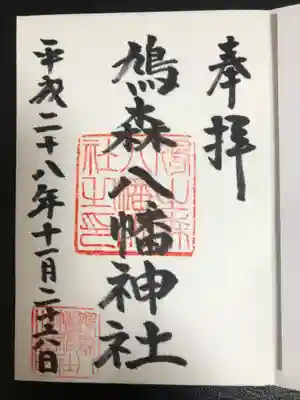 奉拝
鳩森八幡神社
鳩之森
八幡神
社之印
平成二十八年十一月二十六日